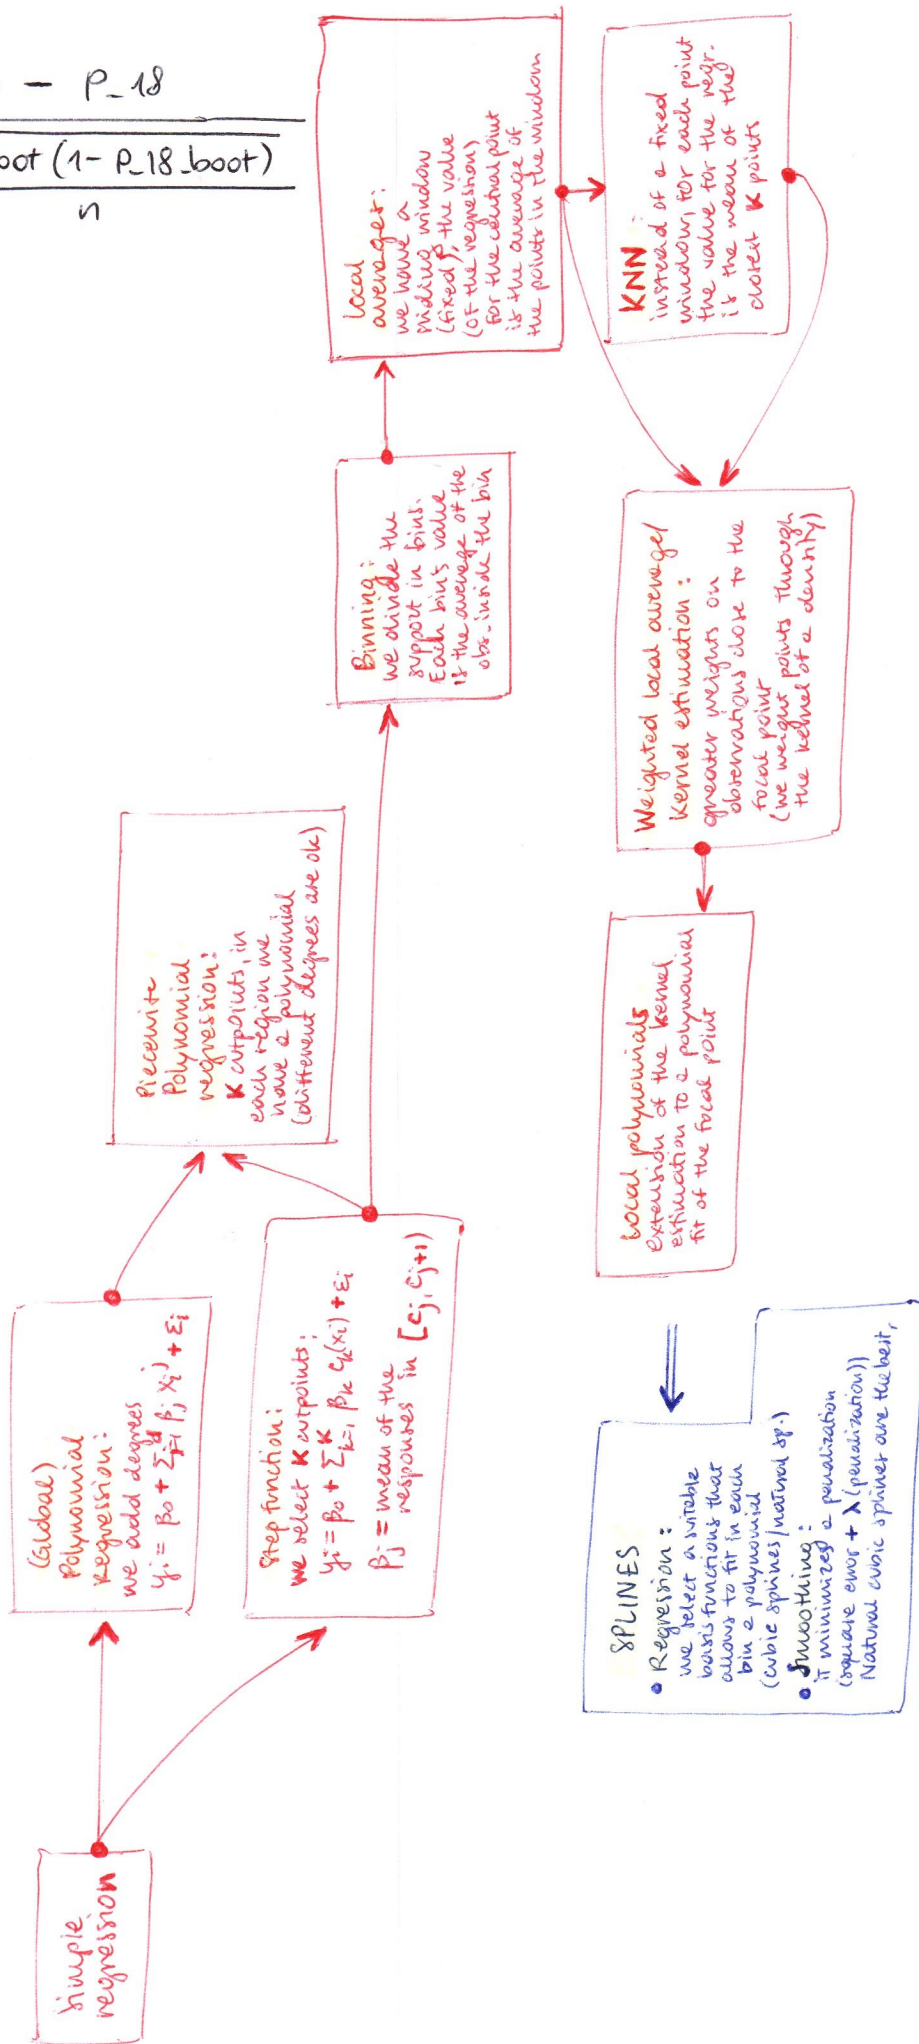 - P_18
oot (1 - P_18_boot)
n
Simple
regression
(Global)
Polynomial
Regression:
we add degrees
yi = β0 + Σ_{j=1}^{d} βj xi^j + εi
Step function:
we select K cutpoints:
yi = β0 + Σ_{k=1}^{K} βk Ck(xi) + εi
βj = mean of the
responses in [cj, cj+1)
Piecewise
Polynomial
regression:
K cutpoints, in
each region we
have a polynomial
(different degrees are ok)
Binning:
we divide the
support in bins.
Each bin's value
is the average of the
obs. inside the bin
Local
averages:
we have a
sliding window
(fixed), the value
(of the regression)
for the central point
is the average of
the points in the window
KNN:
instead of a fixed
window, for each point
the value for the regr.
is the mean of the
closest K points
Weighted local average/
Kernel estimation:
greater weights on
observations close to the
focal point
(we weight points through
the kernel of a density)
Local polynomials
extension of the kernel
estimation to a polynomial
fit of the focal point
SPLINES
• Regression:
we select a suitable
basis functions that
allows to fit in each
bin a polynomial
(cubic splines/natural sp.)
• Smoothing:
it minimizes a penalization
(square error + λ(penalization))
Natural cubic splines are the best,